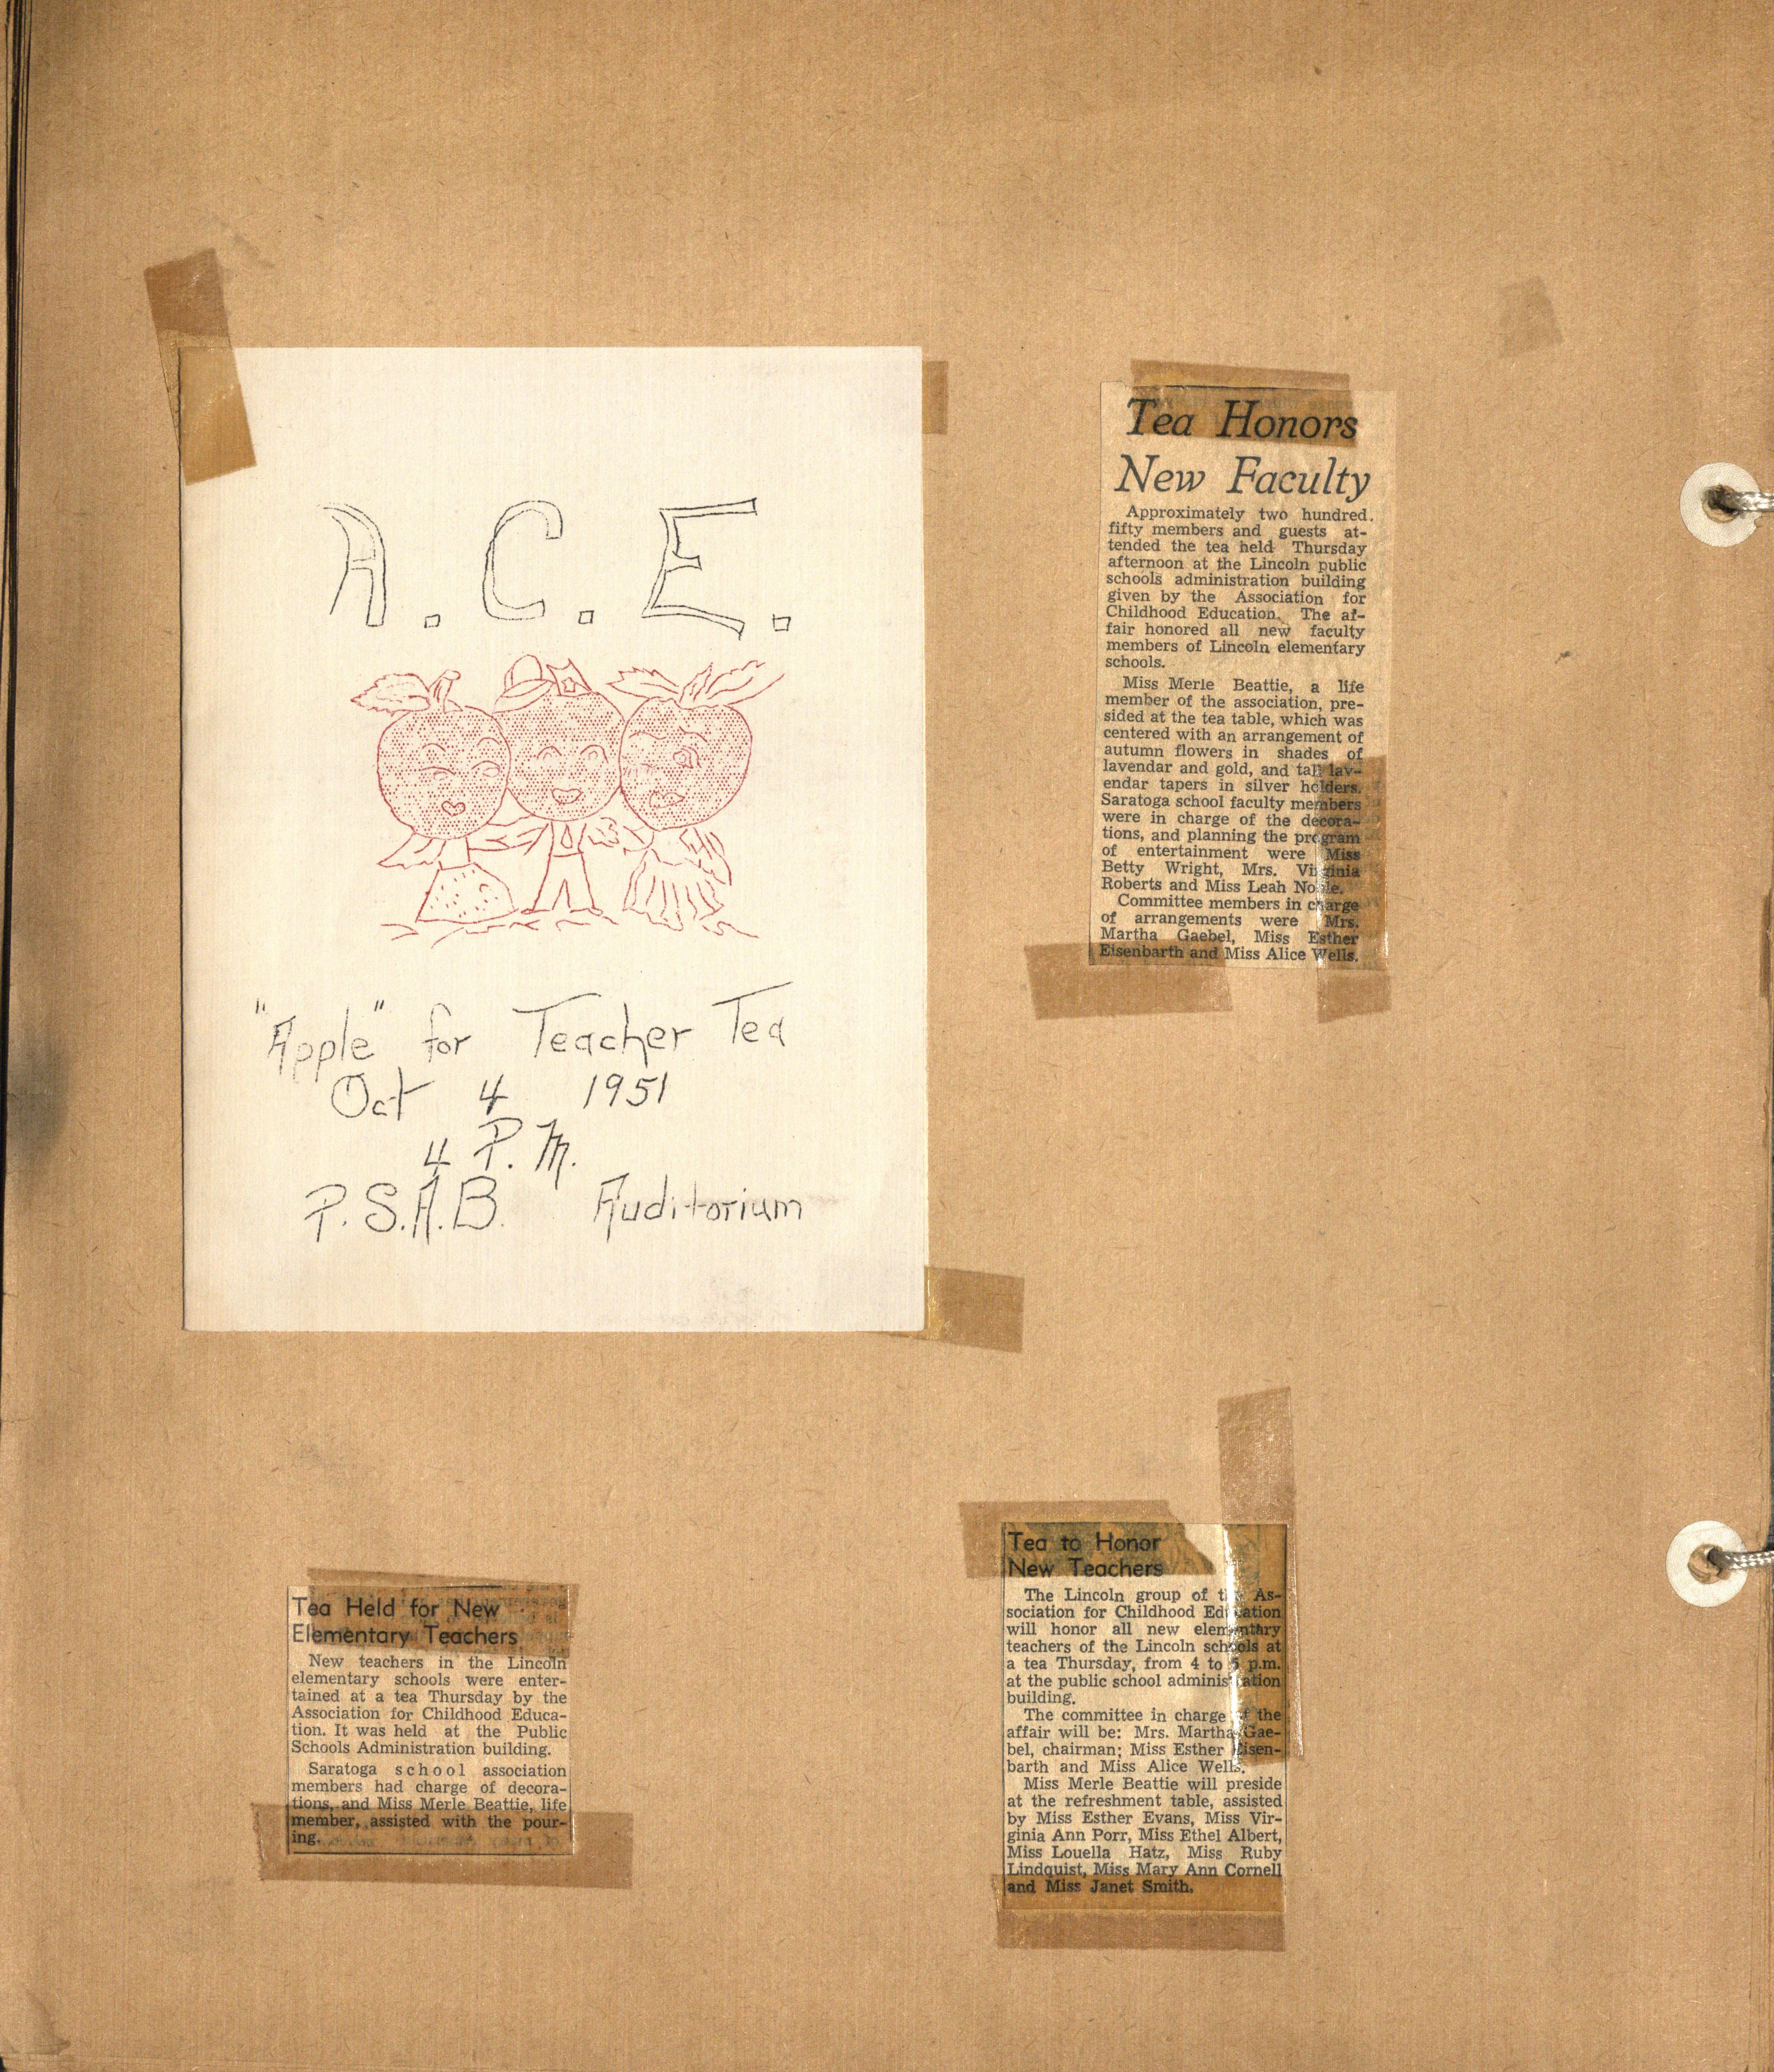 A.C.E.
"Apple" for Teacher Tea
Oct 4 1951
4 P.M.
P.S.A.B. Auditorium
Tea Honors
New Faculty
Approximately two hundred
fifty members and guests at-
tended the tea held Thursday
afternoon at the Lincoln public
schools administration building
given by the Association for
Childhood Education. The af-
fair honored all new faculty
members of Lincoln elementary
schools.
Miss Merle Beattie, a life
member of the association, pre-
sided at the tea table, which was
centered with an arrangement of
autumn flowers in shades of
lavendar and gold, and tall lav-
endar tapers in silver holders.
Saratoga school faculty members
were in charge of the decora-
tions, and planning the program
of entertainment were Miss
Betty Wright, Mrs. Virginia
Roberts and Miss Leah Noble.
Committee members in charge
of arrangements were Mrs.
Martha Gaebel, Miss Esther
Eisenbarth and Miss Alice Wells.
Tea Held for New
Elementary Teachers
New teachers in the Lincoln
elementary schools were enter-
tained at a tea Thursday by the
Association for Childhood Educa-
tion. It was held at the Public
Schools Administration building.
Saratoga school association
members had charge of decora-
tions, and Miss Merle Beattie, life
member, assisted with the pour-
ing.
Tea to Honor
New Teachers
The Lincoln group of the As-
sociation for Childhood Education
will honor all new elementary
teachers of the Lincoln schools at
a tea Thursday, from 4 to 5 p.m.
at the public school administration
building.
The committee in charge of the
affair will be: Mrs. Martha Gae-
bel, chairman; Miss Esther Eisen-
barth and Miss Alice Wells.
Miss Merle Beattie will preside
at the refreshment table, assisted
by Miss Esther Evans, Miss Vir-
ginia Ann Porr, Miss Ethel Albert,
Miss Louella Hatz, Miss Ruby
Lindquist, Miss Mary Ann Cornell
and Miss Janet Smith.